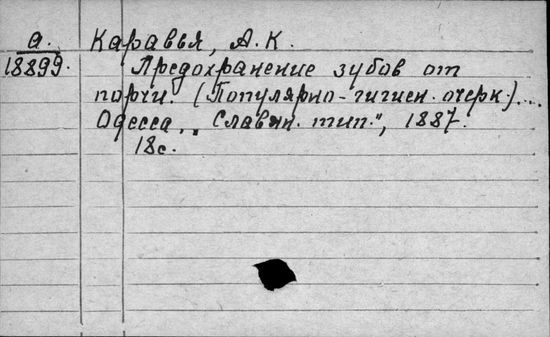 а. Каравья, А. К.
18899. Предохранение зубов от
порчи. (Популярно-гигиен. очерк.)...
Одесса, „Славян. тип.", 1887.
18с.